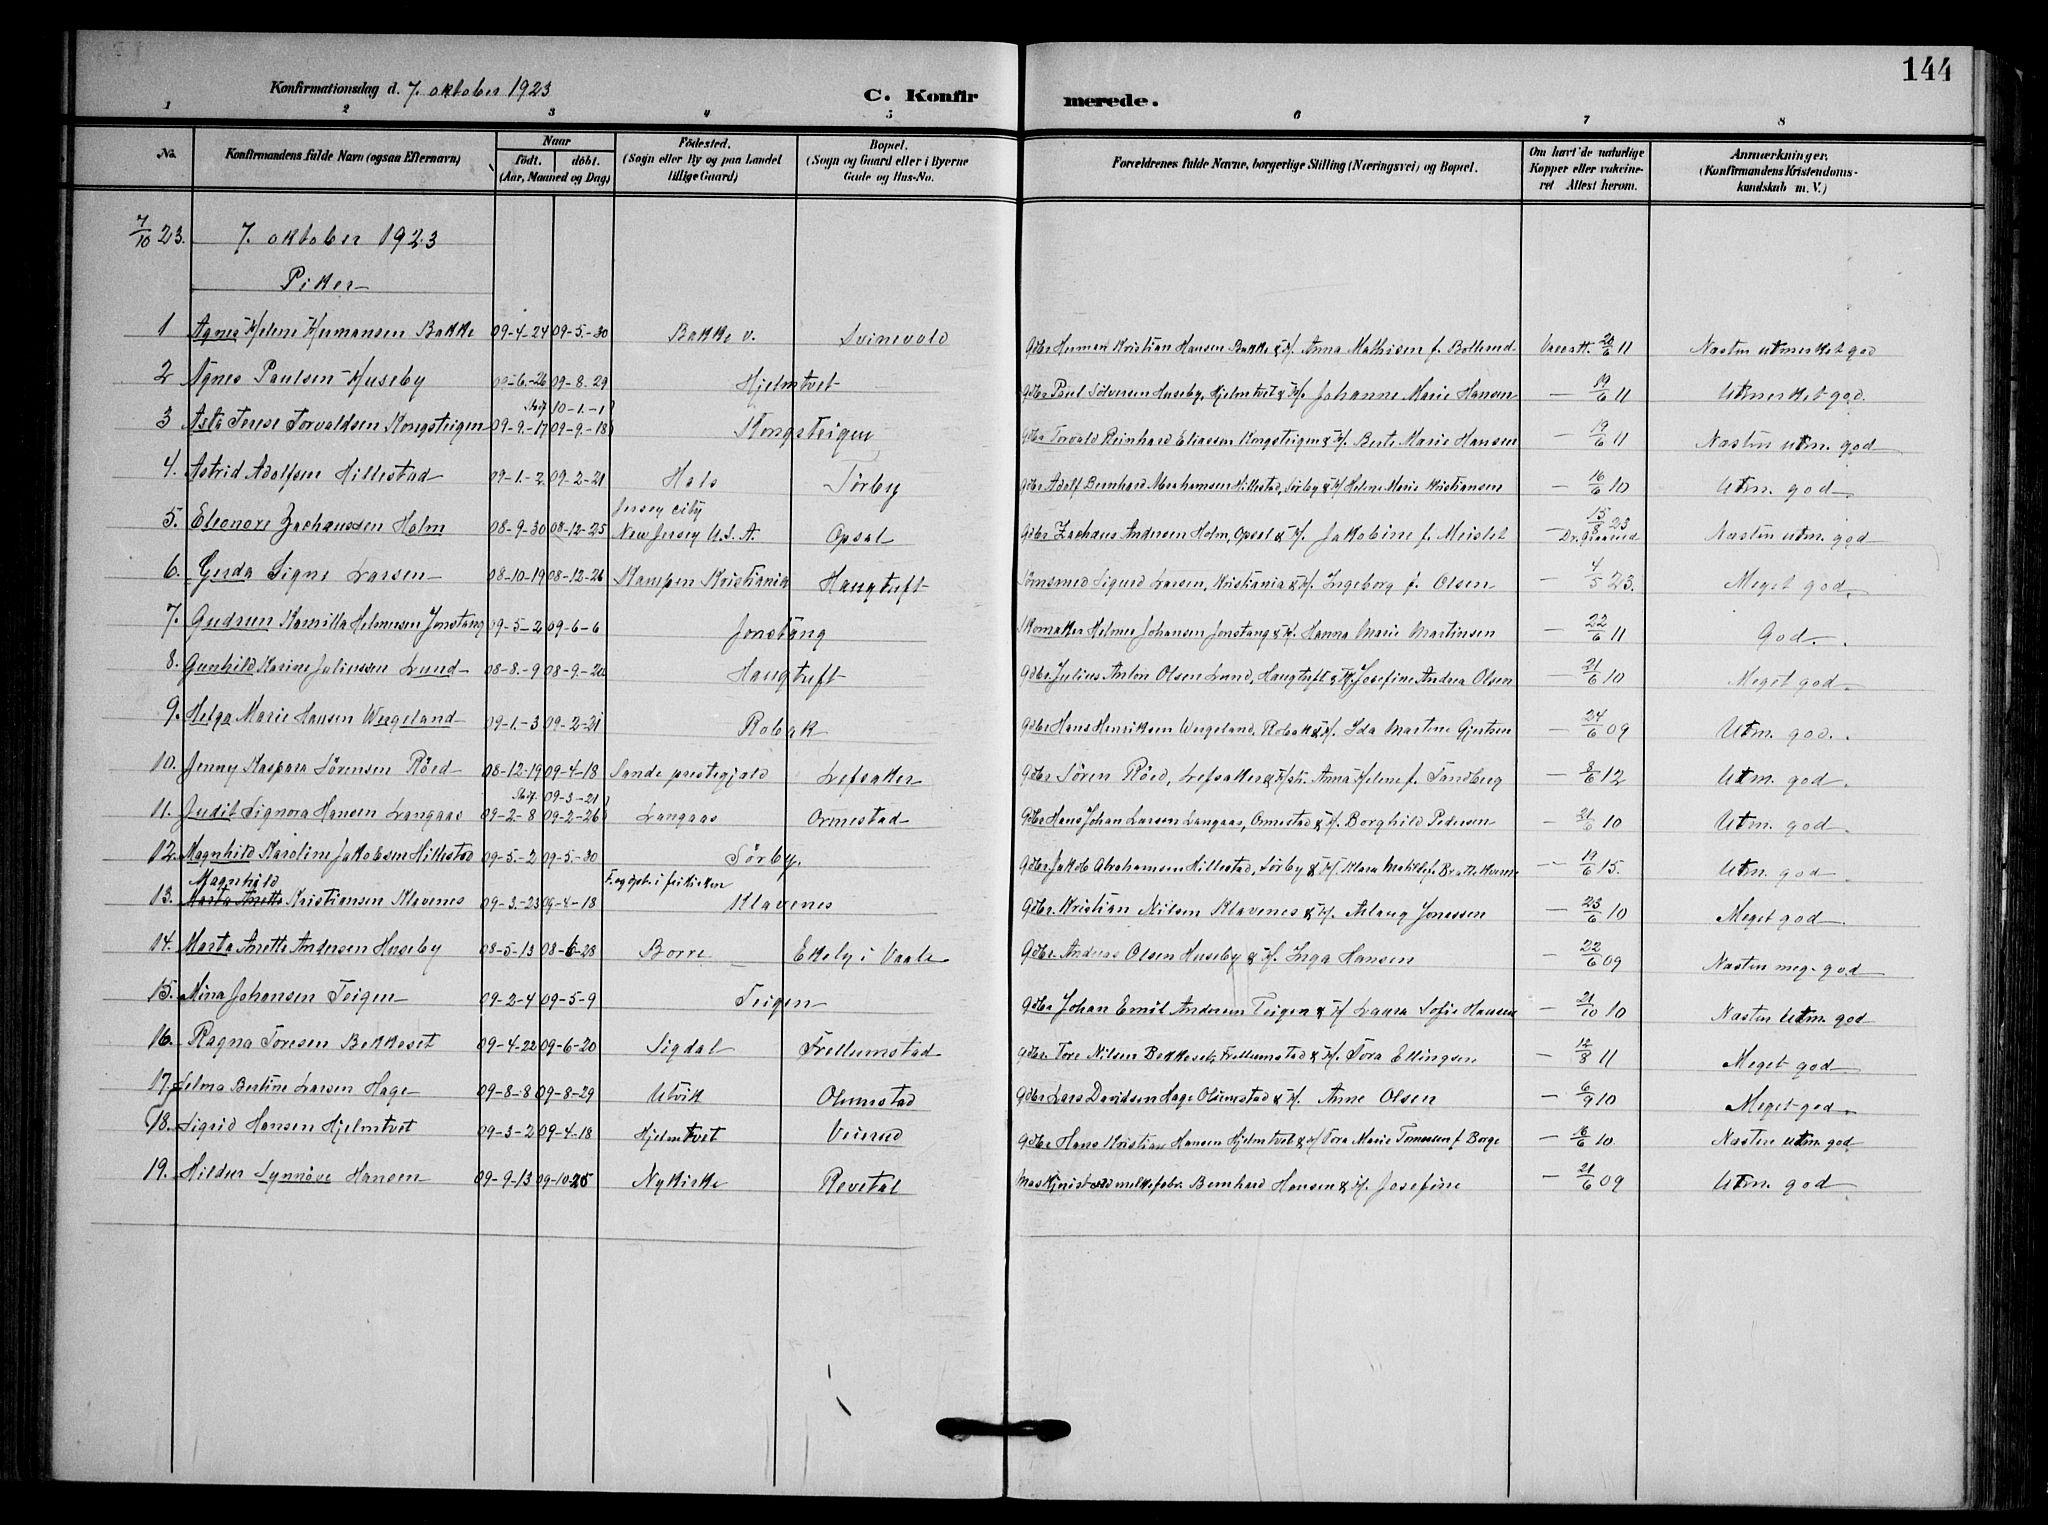 144
Konfirmationsdag d. 7. oktober 1923
C. Konfirmerede.
1 2 3 4 5 6 7 8
No.
Konfirmandens fulde Navn (ogsaa Efternavn)
Naar
født. døbt.
(Aar, Maaned og Dag)
Fødested.
(Sogn eller By og paa Landet
tillige Gaard)
Bopæl.
(Sogn og Gaard eller i Byerne
Gade og Hus-No.
Forældrenes fulde Navne, borgerlige Stilling (Næringsvei) og Bopæl.
Om havt de naturlige
Kopper eller vakcine-
ret Attest herom.
Anmærkninger.
(Konfirmandens Kristendoms-
kundskab m. V.)
7/10 23. 7. oktober 1923
Piker
1 Agnes Helene Hermansen Bakke 09-4-24 09-5-30 Bakke v. Svinevold Gdbr Herman Kristian Hansen Bakke & H. Anna Mathisen f. Bollerud Vacatt. 20/6 11 Næsten utmerket god
2 Agnes Paulsen Huseby 09-6-26 09-8-29 Hjelmtvet Gdbr Paul Sølversen Huseby, Hjelmtvet & H. Johanne Marie Hansen — 19/6 11 Utmerket god.
3 Asta Terese Torvaldsen Kongsteigen 09-9-17 09-9-18 Stadf. 10-1-1 Kongsteigen Gdbr Torvald Reinhard Eliassen Kongsteigen & H. Berte Marie Hansen — 19/6 11 Næsten utm. god
4. Astrid Adolfsen Hillestad 09-1-2 09-2-21 Hals Sørby Gdbr Adolf Bernhard Abrahamsen Hillestad, Sørby & H. Helene Marie Kristiansen — 16/6 10 Utm. god
5. Eleonore Zachaussen Holm 08-9-30 08-12-25 Jersey City New Jersey U.S.A. Opsal Gdbr Zachaus Andersen Holm, Opsal & H. Jakobine f. Meislet — 15/8 23 Næsten utm. god
6. Gerda Signe Larsen 08-10-19 08-12-26 Kampen Kristiania Haugtuft Sigurd Larsen, Kristiania & H. Ingeborg f. Olsen — 4/5 23. Meget god
7. Gudrun Kamilla Helmersen Jonstang 09-5-2 09-6-6 Jonstang Skomaker Helmer Johansen Jonstang & H. Hanna Marie Martinsen — 22/6 11 God.
8. Gunhild Karine Juliussen Lund 08-8-9 08-9-20 Haugtuft Gdbr Julius Anton Olsen Lund, Haugtuft & H. Josefine Andrea Olsen — 21/6 10 Meget god
9. Helga Marie Hansen Wergeland 09-1-3 09-2-21 Robak Gdbr Hans Henriksen Wergeland, Robak & H. Ida Martine Gjertsen — 24/6 09 Utm. god.
10. Jenny Kaspara Sørensen Røed 08-12-19 09-4-18 Sande prestegjeld Lefsaker Gdbr Søren Røed, Lefsaker & H. Anna Helene f. Sandberg — 8/6 12 Utm. god
11. Judit Signora Hansen Langaas 09-2-8 09-2-26 Stadf. 09-3-21 Langaas Ormestad Gdbr Hans Johan Larsen Langaas, Ormestad & H. Borghild Pedersen — 21/6 10 Utm. god
12. Magnhild Karoline Jakobsen Hillestad 09-5-2 09-5-30 Sørby. Gdbr Jakob Abrahamsen Hillestad, Sørby & H. Klara Matilde f. Brattekverne — 19/6 15. Utm. god
13. Magnhild Marta Anette Kristiansen Klavenes 09-3-23 09-4-18 F. og dpt. i frikirken Klavenes Gdbr. Kristian Nilsen Klavenes & H. Aslaug Jonassen — 23/6 10 Meget god
14. Marta Anette Andersen Huseby 08-5-13 08-6-28 Borre Ekely i Vaale Gdbr Andreas Olsen Huseby & H. Inga Hansen — 22/6 09 Næsten meg. god
15. Mina Johansen Teigen 09-2-4 09-5-9 Teigen Gdbr Johan Emil Andersen Teigen & H. Laura Sofie Hansen — 21/10 10 Næsten utm. god
16. Ragna Toresen Bekkeset 09-4-22 09-6-20 Sigdal Frellumstad Gdbr Tore Nilsen Bekkeset, Frellumstad & H. Tora Ellingsen — 12/8 11 Meget god
17. Selma Bertine Larsen Hage 09-8-8 09-8-29 Ulvik Olumstad Gdbr Lars Davidsen Hage Olumstad & H. Anne Olsen — 6/9 10 Meget god
18. Sigrid Hansen Hjelmtvet 09-3-2 09-4-18 Hjelmtvet Veirud Gdbr Hans Kristian Hansen Hjelmtvet & H. Tora Marie Tomessen f. Borge — 16/6 10 Næsten utm. god
19. Hildur Synnøve Hansen 09-9-13 09-10-25 Nykirke Revetal Maskinist ved melkefabr. Bernhard Hansen & H. Josefine — 21/6 09 Utm. god